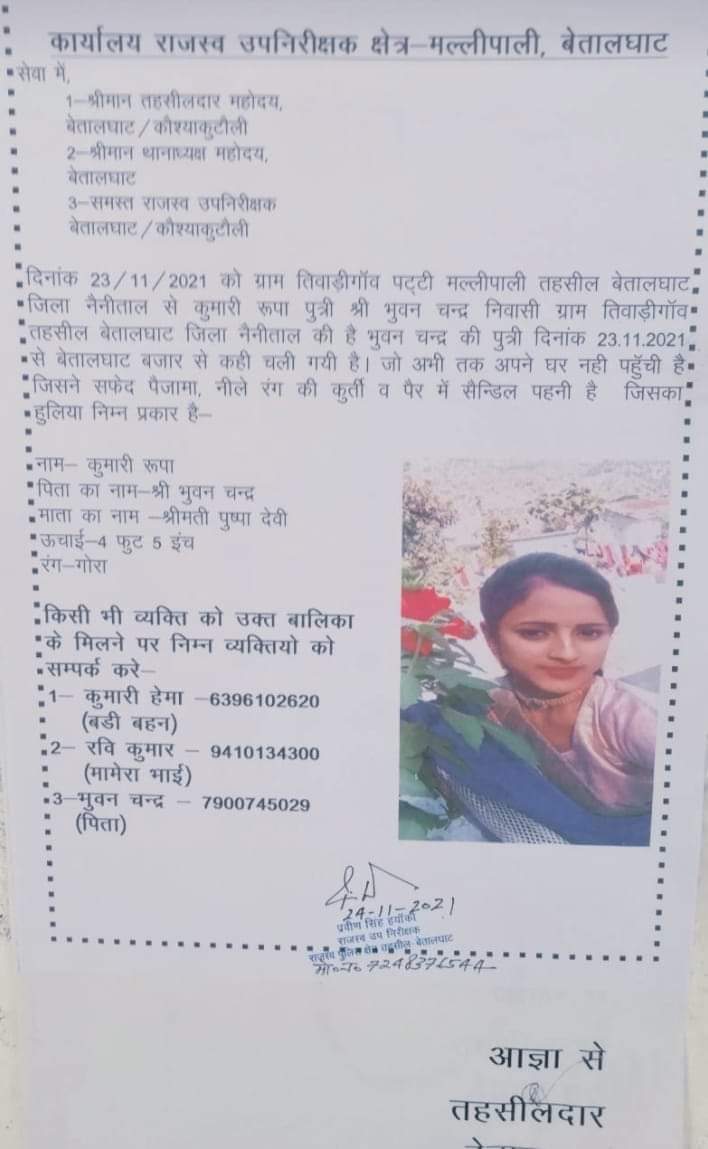 कार्यालय राजस्व उपनिरीक्षक क्षेत्र–मल्लीपाली, बेतालघाट
सेवा में,
1–श्रीमान तहसीलदार महोदय,
बेतालघाट/कौश्याकुटौली
2–श्रीमान थानाध्यक्ष महोदय,
बेतालघाट
3–समस्त राजस्व उपनिरीक्षक
बेतालघाट/कौश्याकुटौली
दिनांक 23/11/2021 को ग्राम तिवाड़ीगॉव पट्टी मल्लीपाली तहसील बेतालघाट
जिला नैनीताल से कुमारी रूपा पुत्री श्री भुवन चन्द्र निवासी ग्राम तिवाड़ीगॉव
तहसील बेतालघाट जिला नैनीताल की है भुवन चन्द्र की पुत्री दिनांक 23.11.2021
से बेतालघाट बजार से कही चली गयी है। जो अभी तक अपने घर नही पहुँची है
जिसने सफेद पैजामा, नीले रंग की कुर्ती व पैर में सैन्डिल पहनी है जिसका
हुलिया निम्न प्रकार है–
नाम– कुमारी रूपा
पिता का नाम–श्री भुवन चन्द्र
माता का नाम –श्रीमती पुष्पा देवी
ऊचाई–4 फुट 5 इंच
रंग–गोरा
किसी भी व्यक्ति को उक्त बालिका
के मिलने पर निम्न व्यक्तियो को
सम्पर्क करे–
1– कुमारी हेमा –6396102620
(बडी बहन)
2– रवि कुमार – 9410134300
(मामेरा भाई)
3–भुवन चन्द्र – 7900745029
(पिता)
24-11-2021
प्रवीण सिंह
राजस्व उप निरीक्षक
राजस्व पुलिस क्षेत्र तहसील-बेतालघाट
मो०न०
आज्ञा से
तहसीलदार